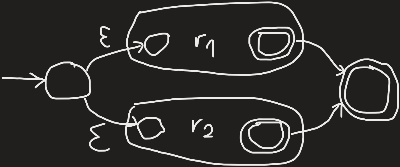 ε r₁
ε r₂